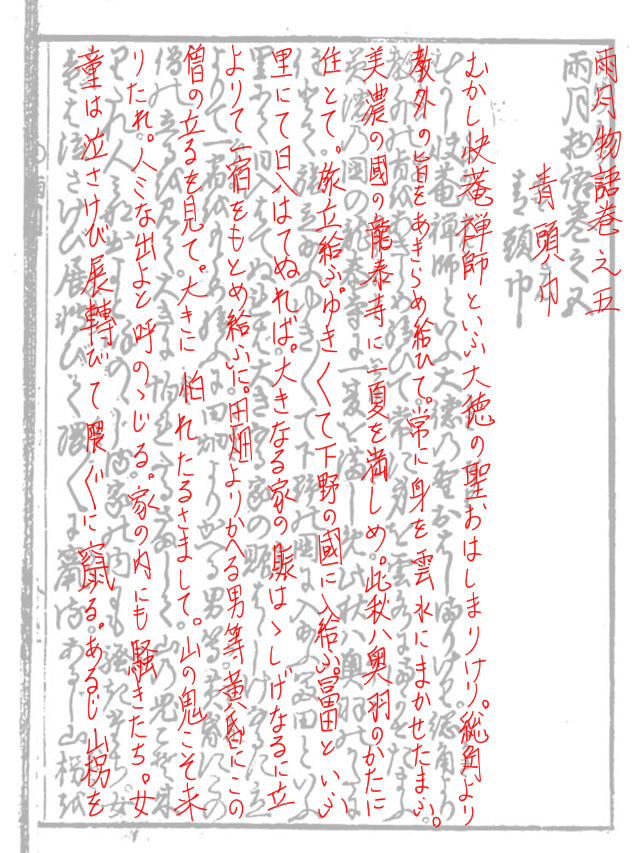 雨月物語巻之五
青頭巾
むかし快菴禅師といふ大徳の聖おはしまりけり。総角より
教外の旨をあきらめ給ひて。常に身を雲水にまかせたまふ。
美濃の國の龍泰寺に一夏を満しめ。此秋ハ奥羽のかたに
住とて。旅立給ふ。ゆき〱て下野の國に入給ふ。冨田といふ
里にて日入はてぬれば。大きなる家の賑はゝしげなるに立
よりて一宿をもとめ給ふに。田畑よりかへる男等黄昏にこの
僧の立るを見て。大きに怕れたるさまして。山の鬼こそ来
りたれ。人ミな出よと呼のゝじる。家の内にも騒きたち。女
童は泣さけび展轉びて隈〲に竄る。あるじ山拐を